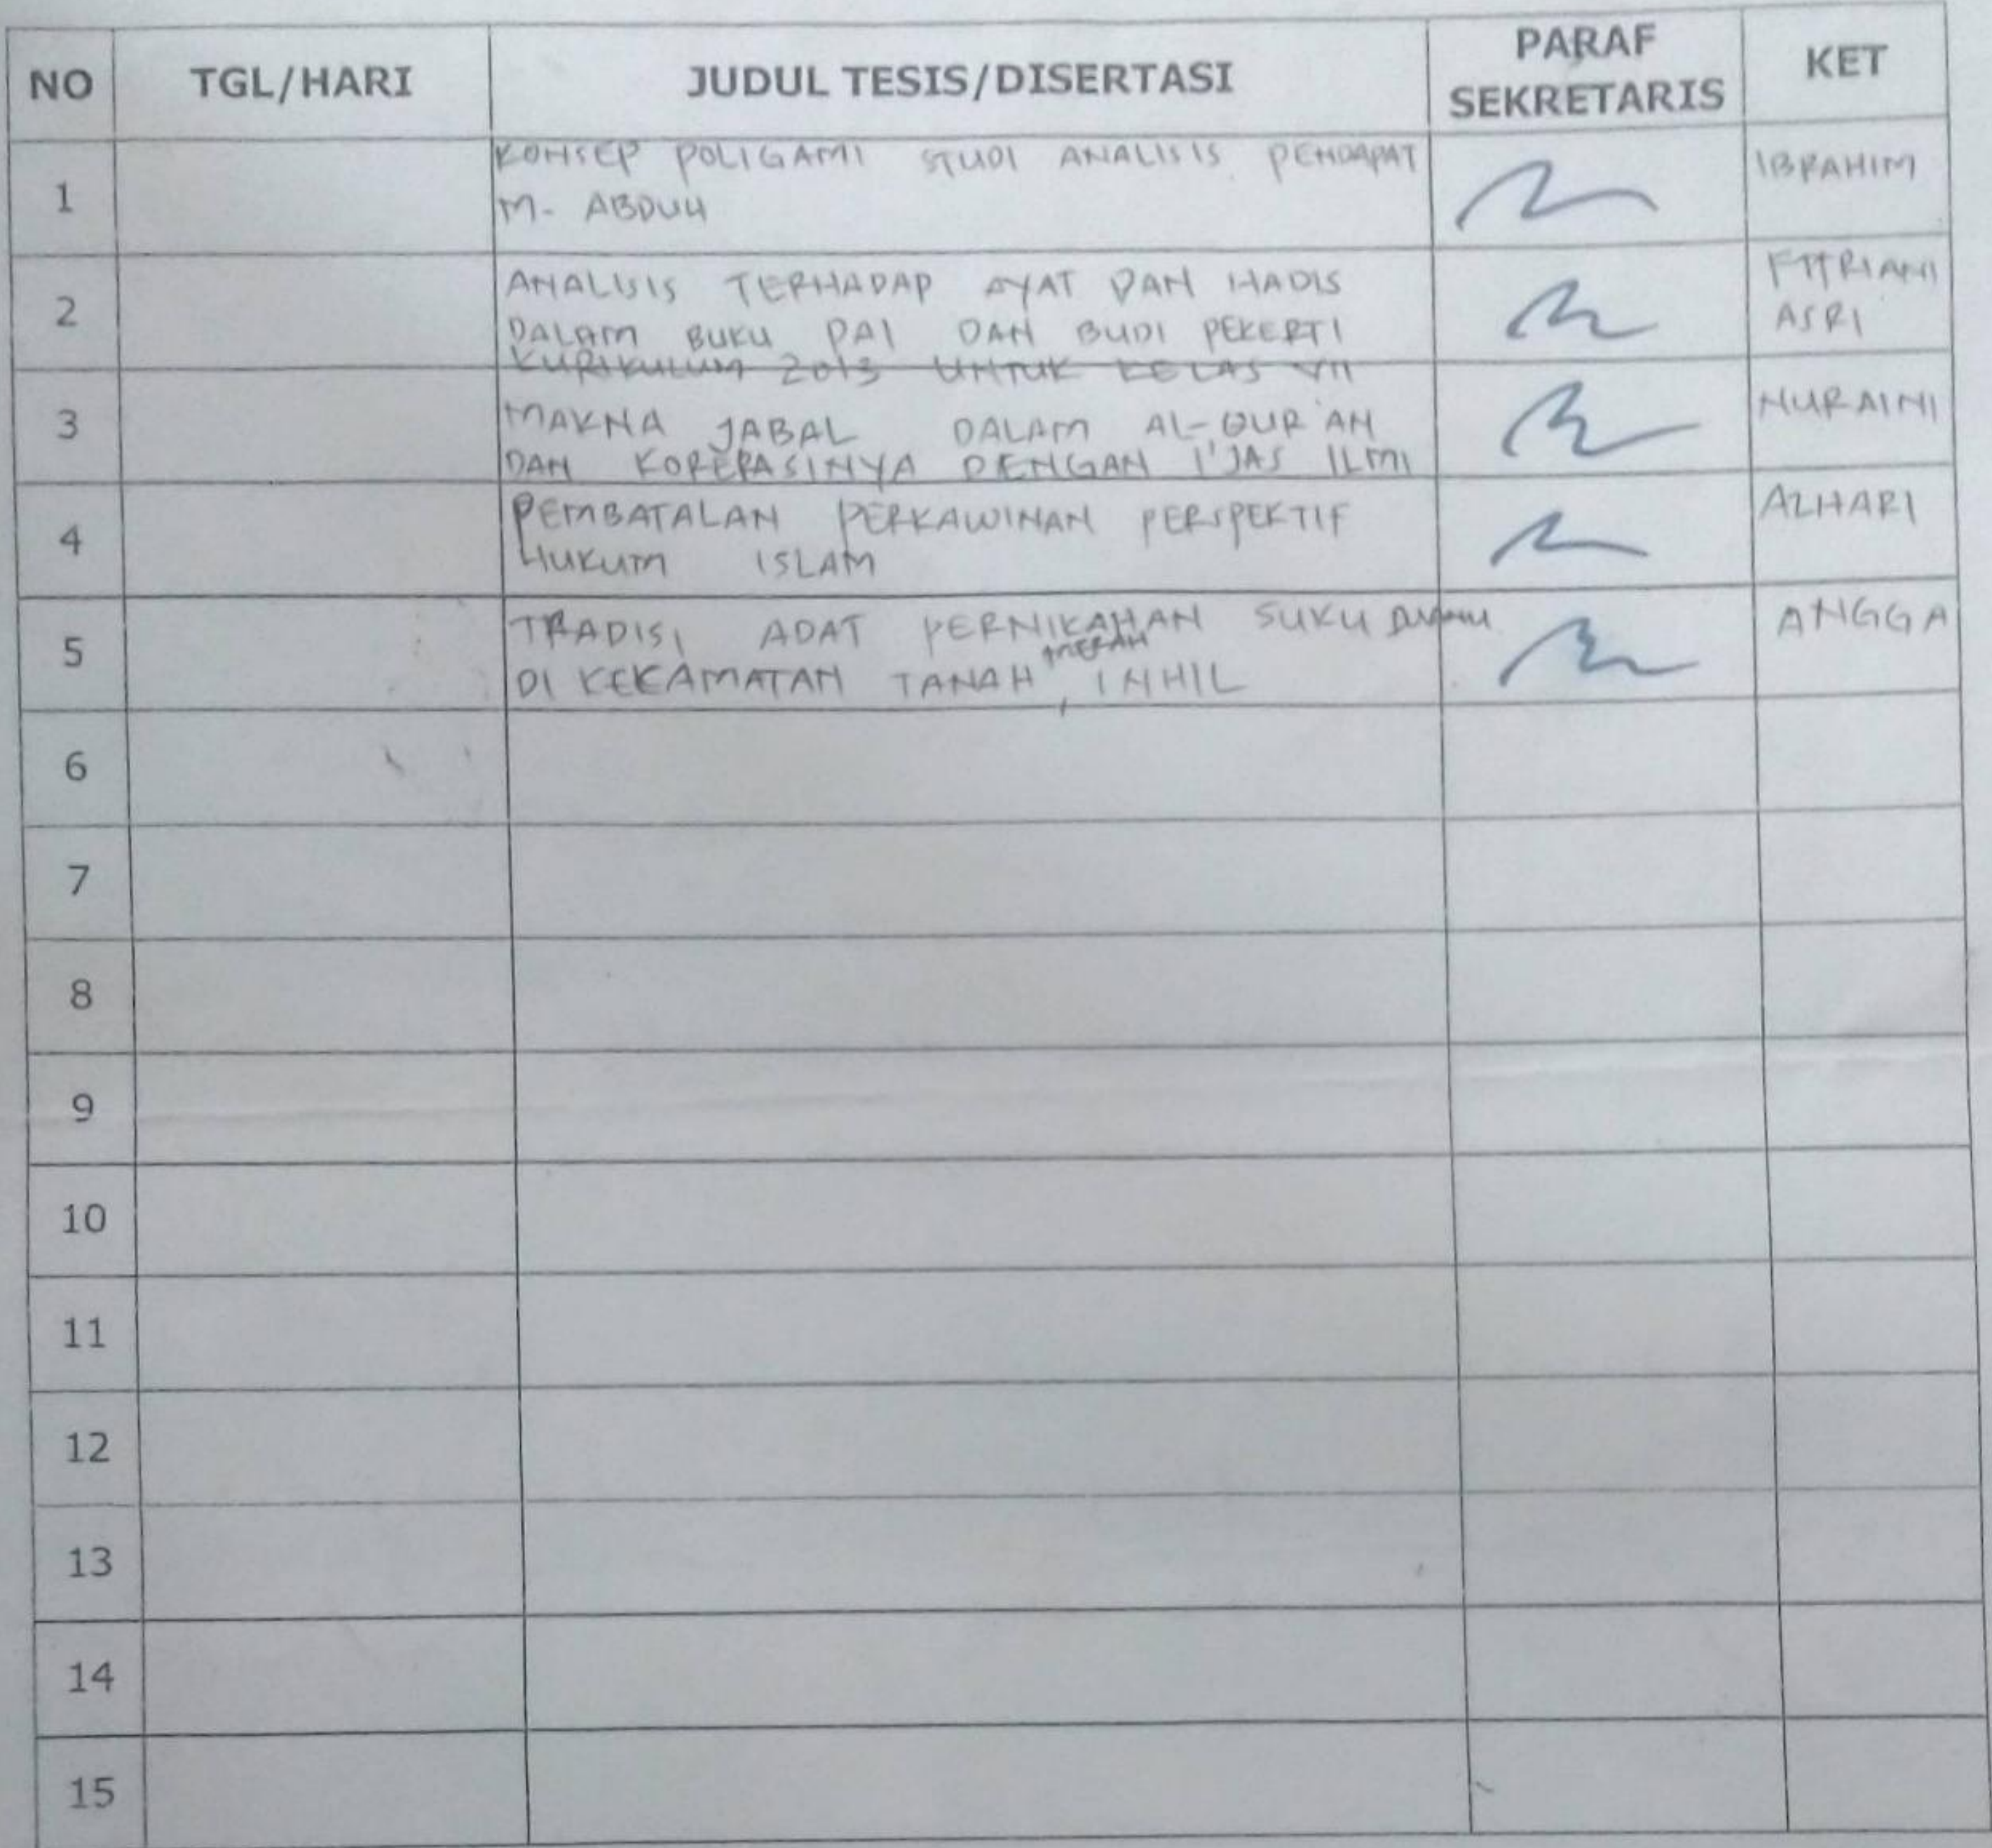 NO TGL/HARI JUDUL TESIS/DISERTASI PARAF SEKRETARIS KET
1 KONSEP POLIGAMI STUDI ANALISIS PENDAPAT IBRAHIM
M- ABDUH
2 ANALISIS TERHADAP AYAT DAN HADIS FITRIANI
DALAM BUKU PAI DAN BUDI PEKERTI ASRI
KURIKULUM 2013 UNTUK KELAS VII
3 MAKNA JABAL DALAM AL-QUR'AN NURAINI
DAN KORERASINYA DENGAN I'JAS ILMI
4 PEMBATALAN PERKAWINAN PERSPEKTIF AZHARI
HUKUM ISLAM
5 TRADISI ADAT PERNIKAHAN SUKU ANGGA
DI KEKAMATAN TANAH MERAH, INHIL
6
7
8
9
10
11
12
13
14
15